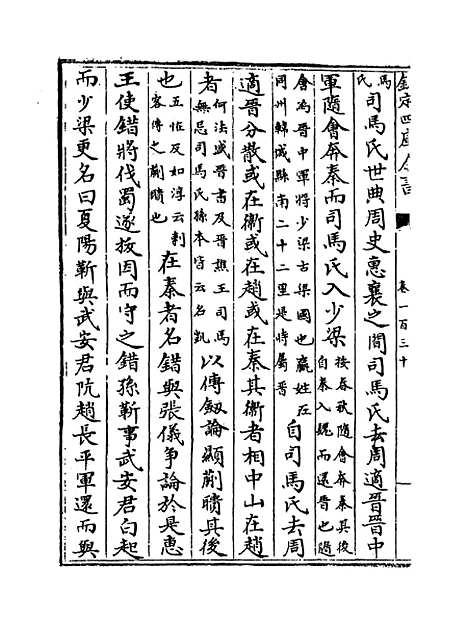 欽定四庫全書
卷一百三十
馬
氏
司馬氏世典周史惠襄之間司馬氏去周適晉晉中
軍隨會奔秦而司馬氏入少梁
按春秋隨會奔秦其後
自秦入魏而還晉也隨
會為晉中軍將少梁古梁國也嬴姓在
同州韓城縣南二十二里是時屬晉
自司馬氏去周
適晉分散或在衛或在趙或在秦其衛者相中山在趙
者
何法盛晉書及晉譙王司馬
無忌司馬氏系本皆云名凱
以傳釼論顯蒯聵其後
也
五怪反如淳云刺
客傳之蒯聵也
在秦者名錯與張儀爭論於是惠
王使錯將伐蜀遂拔因而守之錯孫靳事武安君白起
而少梁更名曰夏陽靳與武安君阬趙長平軍還而與